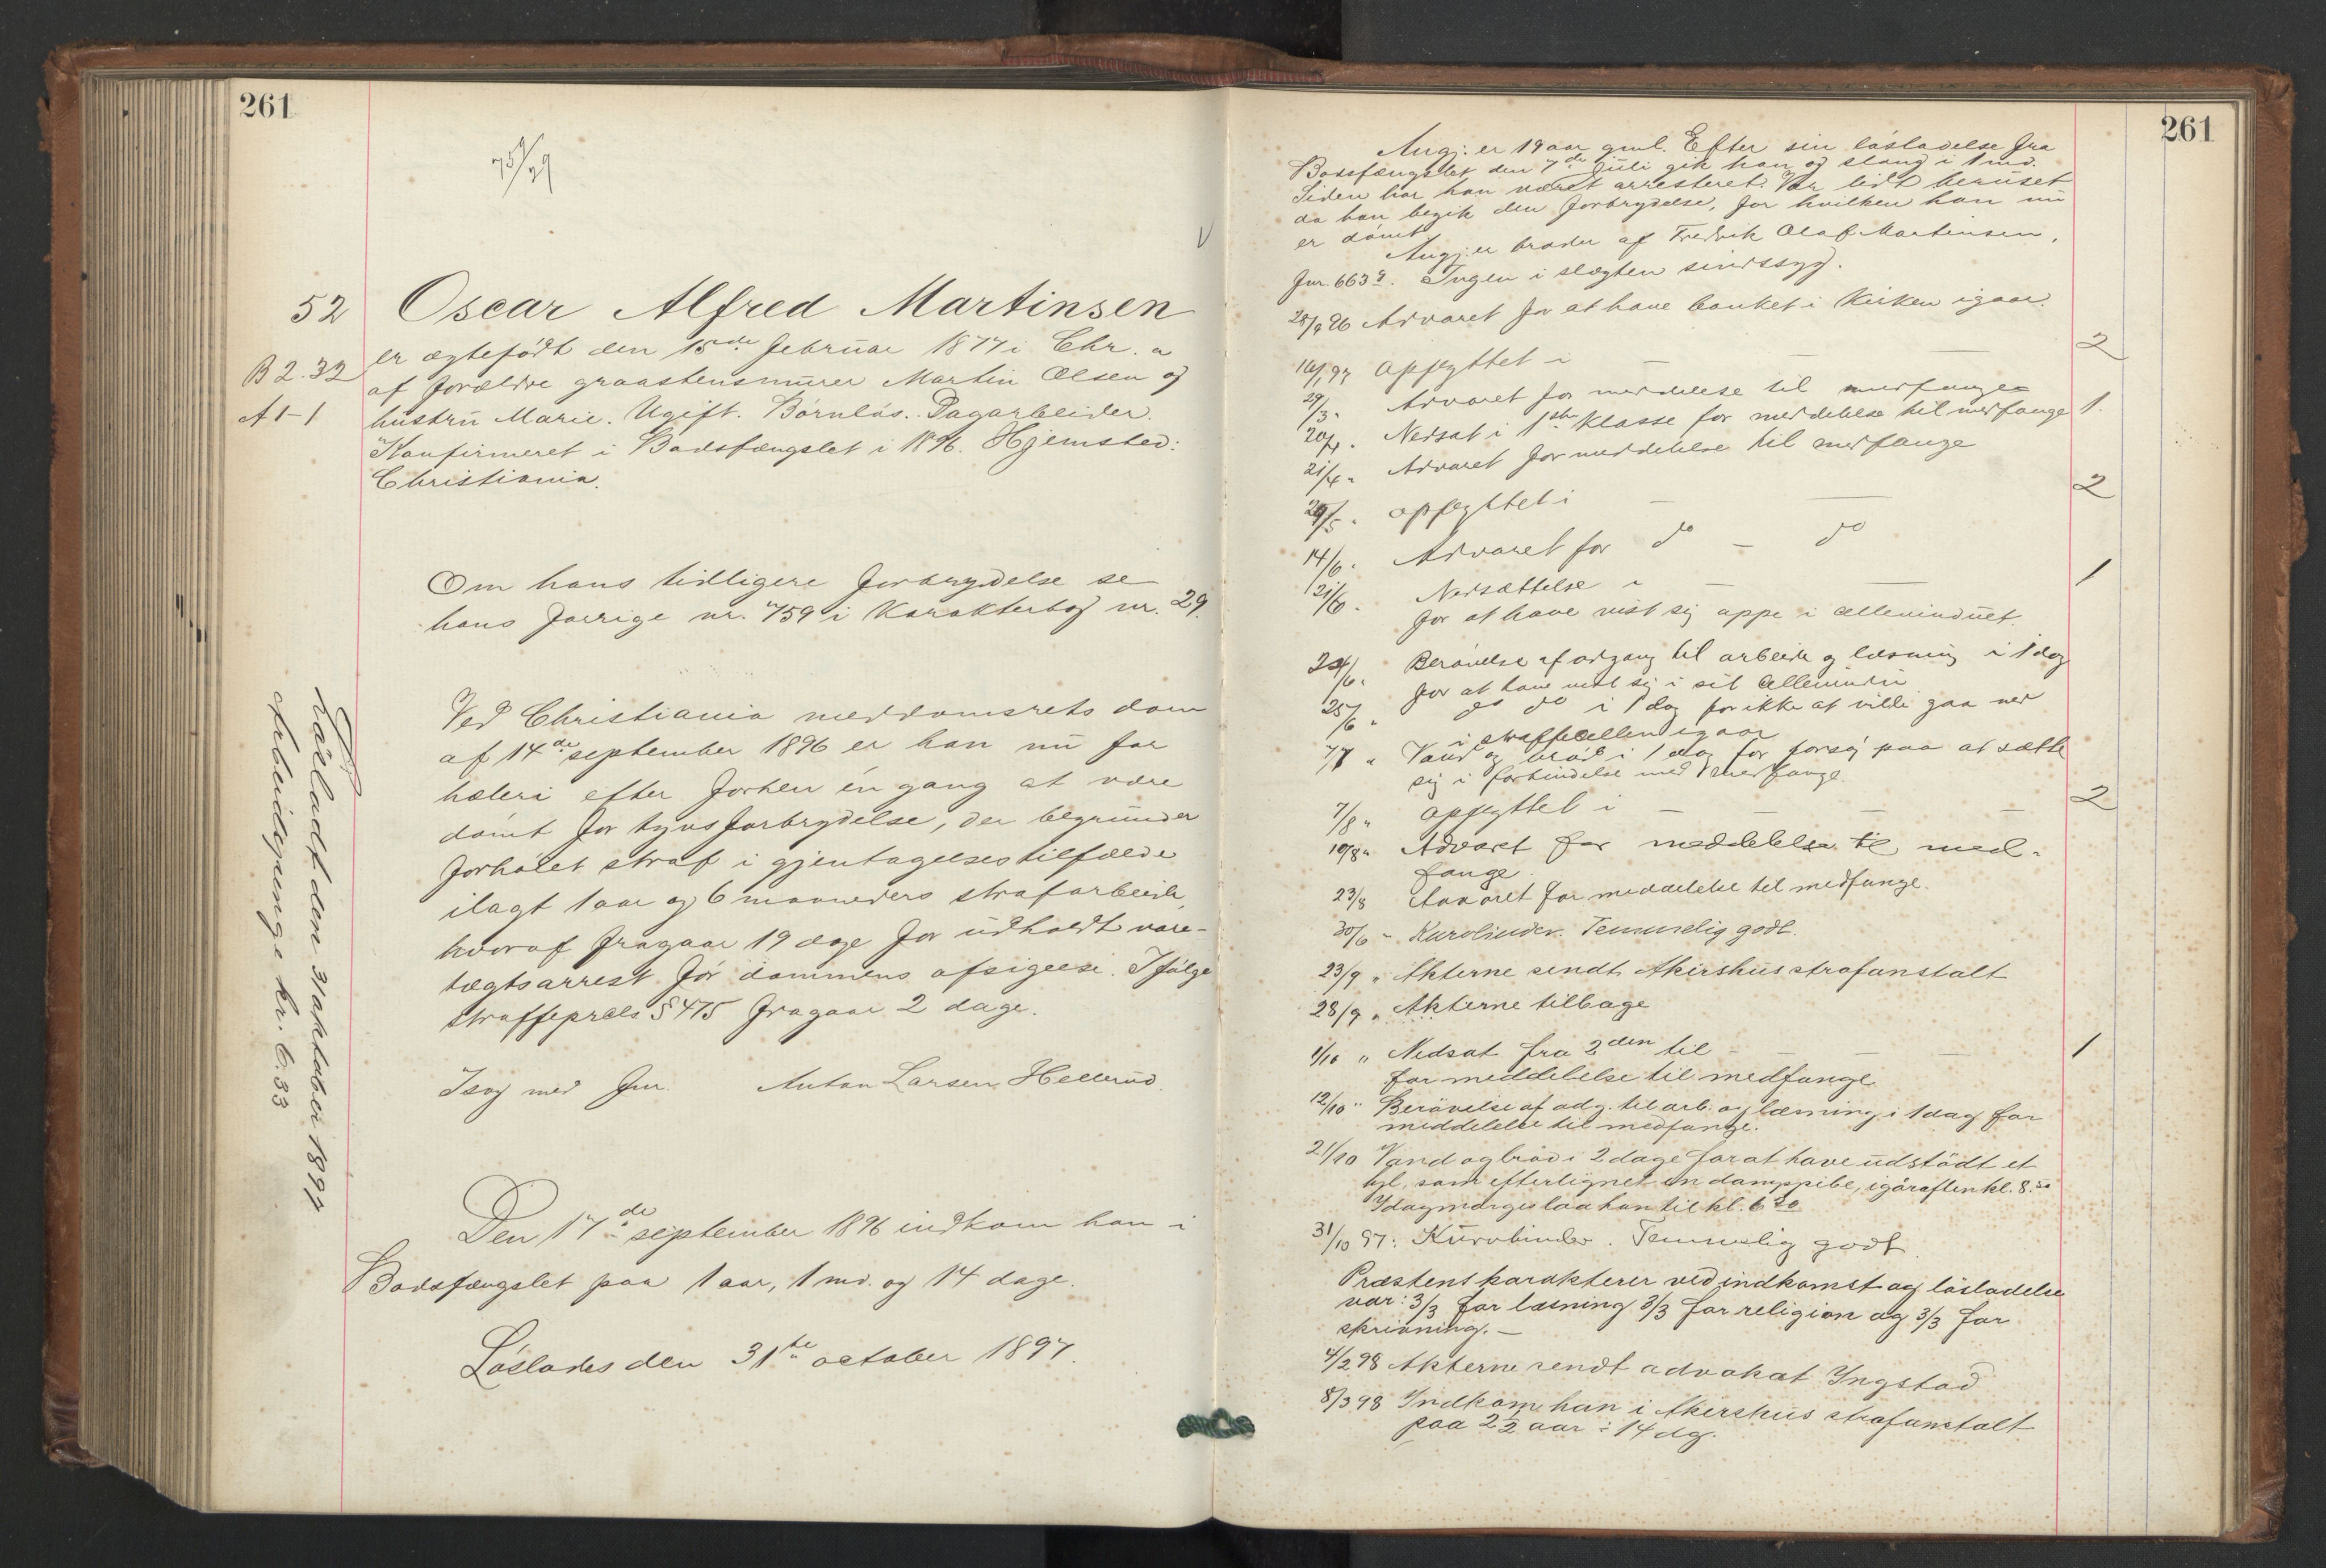 261
759/29
52
Oscar Alfred Martinsen
er ægtefödt den 15de februar 1877 i Chr.a
B 2.32
af forældre graastensmurer Martin Olsen og
A 1-1
hustru Marie. Ugift. Börnlös. Dagarbeider.
Konfirmeret i Bodsfængslet i 1896. Hjemsted:
Christiania.
Om hans tidligere forbrydelse se
hans forrige nr. 759 i Karakterbog nr. 29.
Ved Christiania meddomsrets dom
af 14de september 1896 er han nu for
hæleri efter forhen én gang at være
dömt for tyvsforbrydelse, der begrunder
forhöiet straf i gjentagelsestilfælde
ilagt 1 aar og 6 maaneders strafarbeide,
hvoraf fragaar 19 dage for udholdt vare-
tægtsarrest för dommens afsigelse. Ifölge
straffeprcls § 475 fragaar 2 dage.
Isag med fm. Anton Larsen Hellerud.
Den 17de september 1896 indkom han i
Bodsfængslet paa 1 aar, 1 md. og 14 dage.
Löslades den 31te october 1897.
Lösladt den 31 oktober 1897
Arbeidspenge kr. 6.33
261
Angj: er 19 aar gml. Efter sin lösladelse fra
Bodsfængslet den 7de juli gik han og slang i 1 md.
Siden har han været arresteret. Var lidt beruset
da han begik den forbrydelse, for hvilken han nu
er dömt.
Angj. er broder af Fredrik Olaf Martinsen,
fnr. 663 9. Ingen i slægten sindssyg.
28/9 96 Advaret for at have banket i Kirken igaar.
16/1 97 Opflyttet i — — — 2
29/3 " Advaret for meddelelse til medfange
20/4 " Nedsat i 1ste Klasse for meddelelse til medfange 1.
21/4 " Advaret for meddelelse til medfange
29/5 " opflyttet i — — 2
14/6 " Advaret for do — do
21/6 " Nedsættelse i — — 1
for at have vist sig oppe i cellevinduet.
24/6 " Berövelse af adgang til arbeide og læsning i 1 dag
for at have vist sig i sit cellevindu
25/6 " do do i 1 dag for ikke at ville gaa ned
i straffecellen igaar
7/7 " Vand og bröd i 1 dag for forsög paa at sætte
sig i forbindelse med 1 medfange.
7/8 " opflyttet i — — — 2
10/8 " Advaret for meddelelse til med-
fange.
23/8 Advaret for meddelelse til medfange.
30/6 " Kurvbinder. Temmelig godt.
23/9 " Akterne sendt Akershus strafanstalt
28/9 " Akterne tilbage
1/10 " Nedsat fra 2den til — — — 1
for meddelelse til medfange
12/10 " Berövelse af adg. til arb. og læsning i 1 dag for
meddelelse til medfange.
21/10 Vand og bröd i 2 dage for at have udstödt et
hyl, som efterlignet en damppibe, igåraften kl. 8.30
Idagmorges laa han til kl. 6 20
31/10 97: Kurvbinder. Temmelig godt.
Præstens karakterer ved indkomst og lösladelse
var: 3/3 for læsning 3/3 for religion og 3/3 for
skrivning. —
4/2 98 Akterne sendt advokat Yngstad
8/3 98 Indkom han i Akershus strafanstalt
paa 2 1/2 aar ÷ 14 dg.